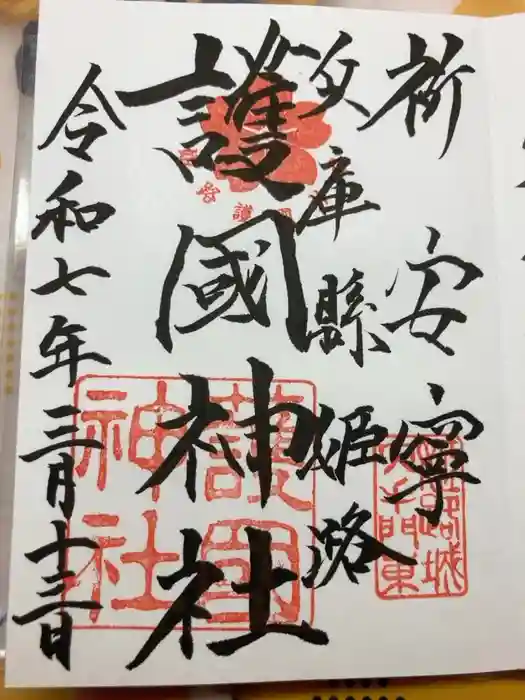 祈安寧
兵庫縣姫路
護國神社
令和七年三月十三日
姫路城
大手門東
護國
神社